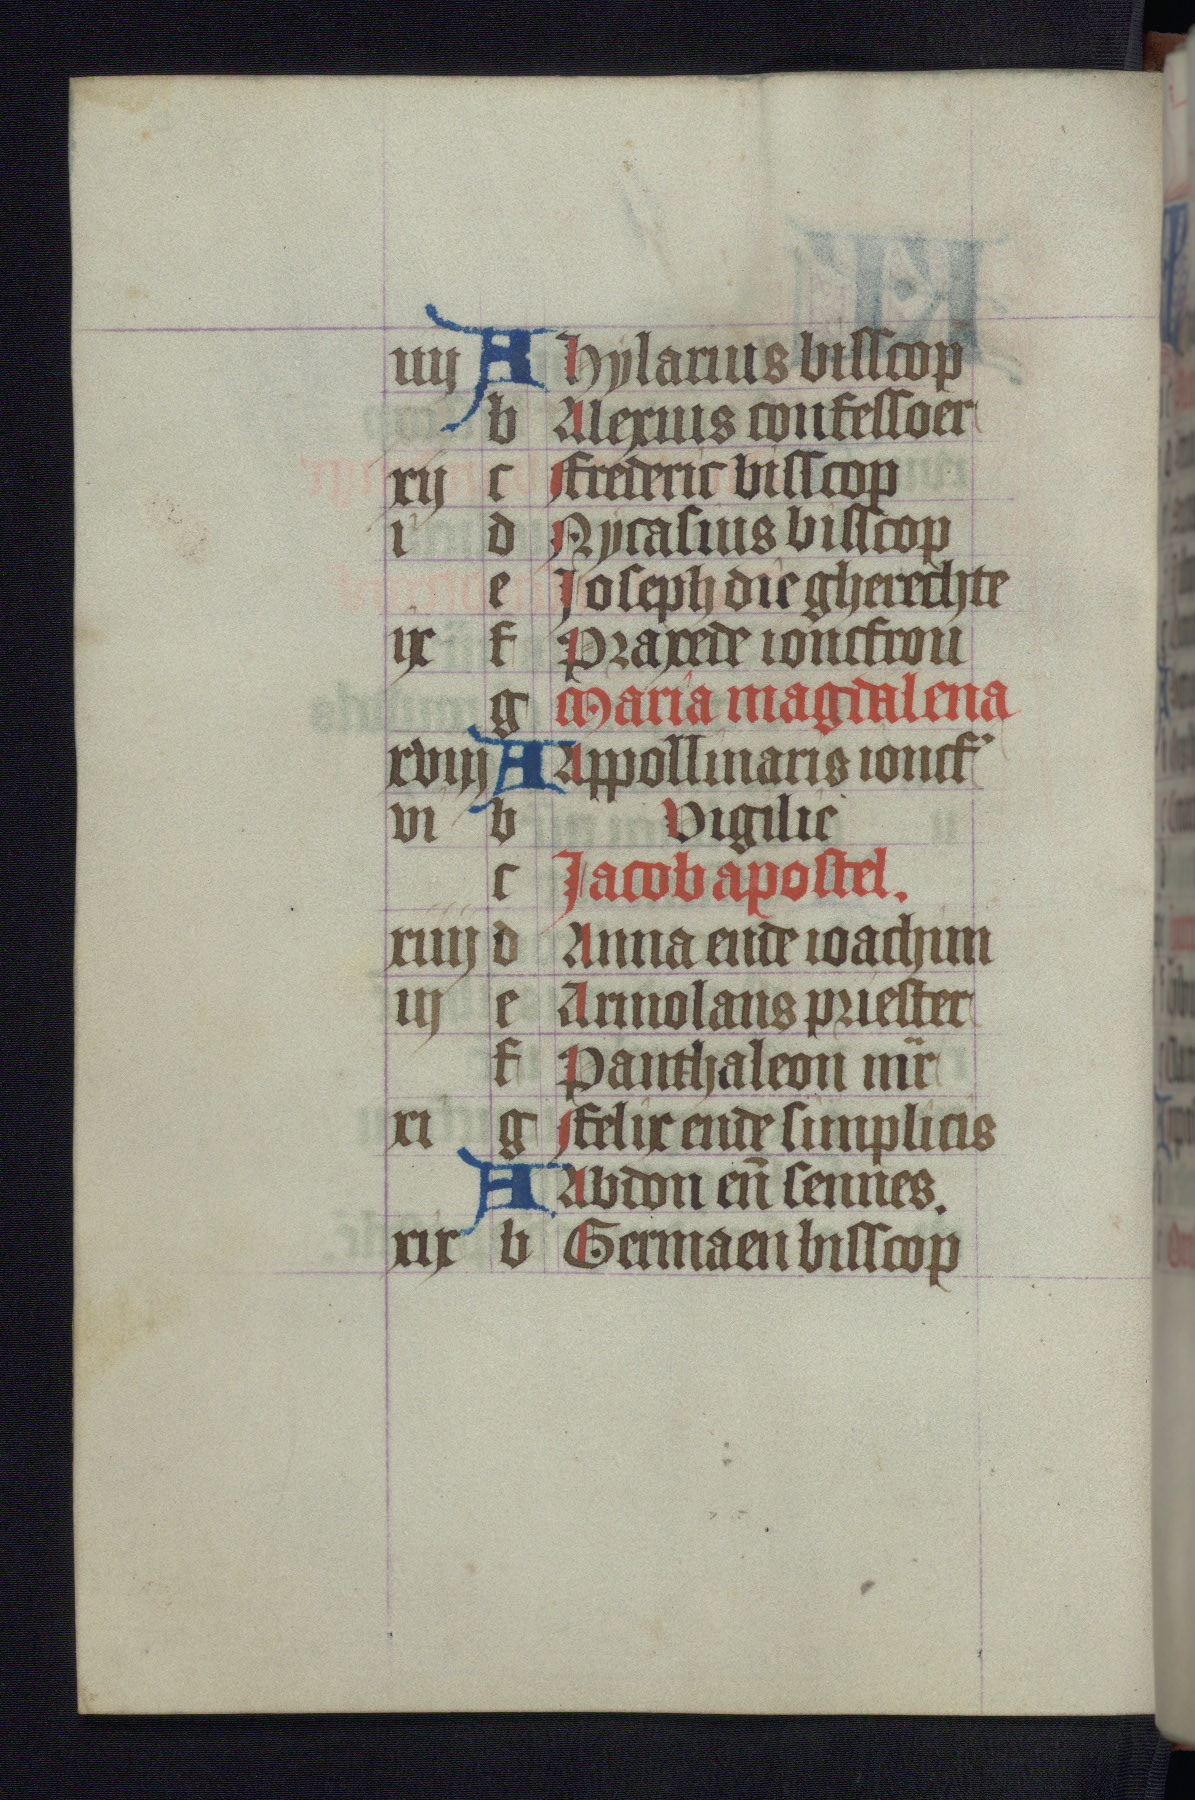 iiij A Hylarius bisscop
b Alexius confessoer
xij c Frederic bisscop
i d Nycasius bisscop
e Joseph die gherechte
ix f Praxede ioncfrou
g Maria magdalena
xviij A Appollinaris ioncf'
vi b Vigilie
c Jacob apostel.
xiiij d Anna ende ioachim
iij e Armolaus priester
f Panthaleon mr̄
xi g Felix ende simplicis
A Abdon en̄ sennes.
xix b Germaen bisscop